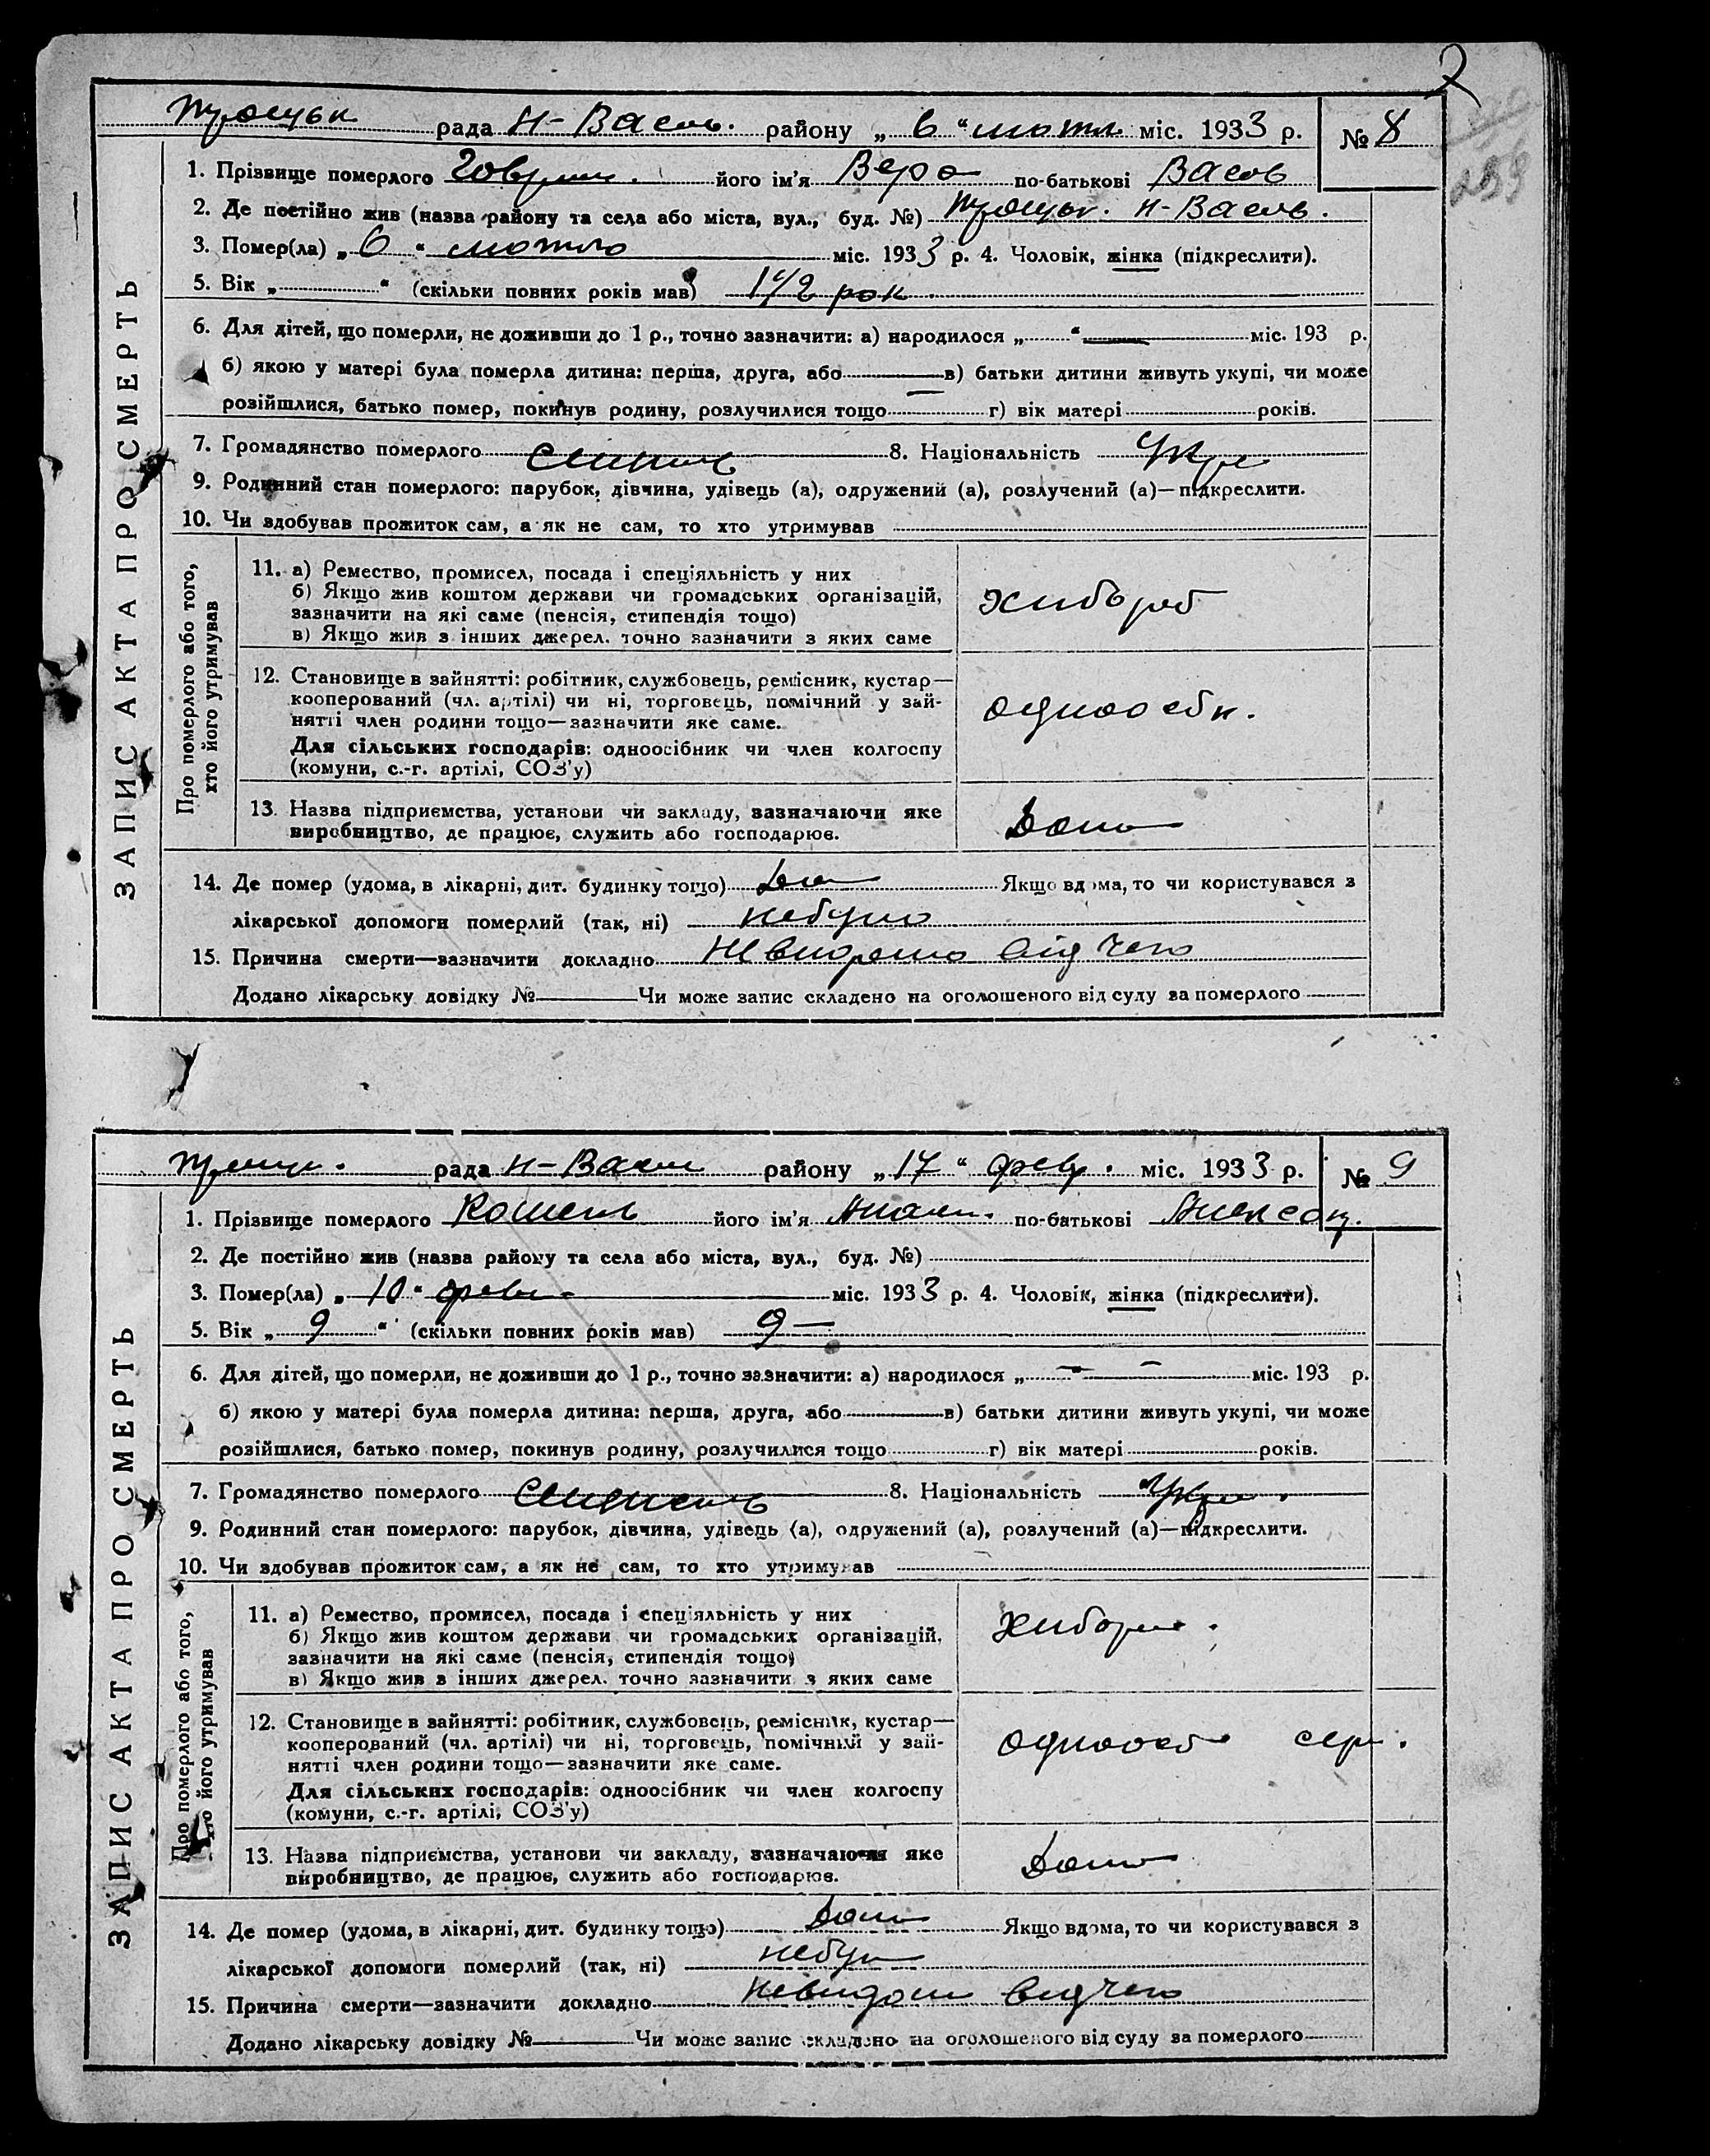 2
рада Н-Васил. району „ 6 “ лютл міс. 1933 р. № 8
ЗАПИС АКТА ПРО СМЕРТЬ
1. Прізвище померлого його ім'я Вера по-батькові Васил
2. Де постійно жив (назва району та села або міста, вул., буд. №) Н-Васил.
3. Помер(ла) „ 6 “ лютого міс. 1933 р. 4. Чоловік, жінка (підкреслити).
5. Вік „ “ (скільки повних років мав) 1 1/2 рок
6. Для дітей, що померли, не доживши до 1 р., точно зазначити: а) народилося „ “ міс. 193 р.
б) якою у матері була померла дитина: перша, друга, або в) батьки дитини живуть укупі, чи може
розійшлися, батько помер, покинув родину, розлучилися тощо г) вік матері років.
7. Громадянство померлого 8. Національність Укр
9. Родинний стан померлого: парубок, дівчина, удівець (а), одружений (а), розлучений (а)—підкреслити.
10. Чи здобував прожиток сам, а як не сам, то хто утримував
Про померлого або того,
хто його утримував
11. а) Ремество, промисел, посада і спеціяльність у них
б) Якщо жив коштом держави чи громадських організацій,
зазначити на які саме (пенсія, стипендія тощо)
в) Якщо жив з інших джерел. точно зазначити з яких саме
хлібороб
12. Становище в зайнятті: робітник, службовець, ремісник, кустар—
кооперований (чл. артілі) чи ні, торговець, помічний у зай-
нятті член родини тощо—зазначити яке саме.
Для сільських господарів: одноосібник чи член колгоспу
(комуни, с.-г. артілі, СОЗ'у)
одноосібн.
13. Назва підприємства, установи чи закладу, зазначаючи яке
виробництво, де працює, служить або господарює.
Дома
14. Де помер (удома, в лікарні, дит. будинку тощо) Якщо вдома, то чи користувався з
лікарської допомоги померлий (так, ні) небуло
15. Причина смерти—зазначити докладно відчего
Додано лікарську довідку № Чи може запис складено на оголошеного від суду за померлого
рада Н-Васил району „ 17 “ февр. міс. 1933 р. № 9
ЗАПИС АКТА ПРО СМЕРТЬ
1. Прізвище померлого Кошель його ім'я по-батькові Алексан.
2. Де постійно жив (назва району та села або міста, вул., буд. №)
3. Помер(ла) „ 10 “ февр міс. 1933 р. 4. Чоловік, жінка (підкреслити).
5. Вік „ 9 “ (скільки повних років мав) 9 —
6. Для дітей, що померли, не доживши до 1 р., точно зазначити: а) народилося „ “ міс. 193 р.
б) якою у матері була померла дитина: перша, друга, або в) батьки дитини живуть укупі, чи може
розійшлися, батько помер, покинув родину, розлучилися тощо г) вік матері років.
7. Громадянство померлого 8. Національність Укр.
9. Родинний стан померлого: парубок, дівчина, удівець (а), одружений (а), розлучений (а)—підкреслити.
10. Чи здобував прожиток сам, а як не сам, то хто утримував
Про померлого або того,
хто його утримував
11. а) Ремество, промисел, посада і спеціяльність у них
б) Якщо жив коштом держави чи громадських організацій,
зазначити на які саме (пенсія, стипендія тощо)
в) Якщо жив з інших джерел. точно зазначити з яких саме
хлібороб.
12. Становище в зайнятті: робітник, службовець, ремісник, кустар—
кооперований (чл. артілі) чи ні, торговець, помічний у зай-
нятті член родини тощо—зазначити яке саме.
Для сільських господарів: одноосібник чи член колгоспу
(комуни, с.-г. артілі, СОЗ'у)
одноосіб сер.
13. Назва підприємства, установи чи закладу, зазначаючи яке
виробництво, де працює, служить або господарює.
Дома
14. Де помер (удома, в лікарні, дит. будинку тощо) Дома Якщо вдома, то чи користувався з
лікарської допомоги померлий (так, ні) небул
15. Причина смерти—зазначити докладно невидомо видчего
Додано лікарську довідку № Чи може запис складено на оголошеного від суду за померлого